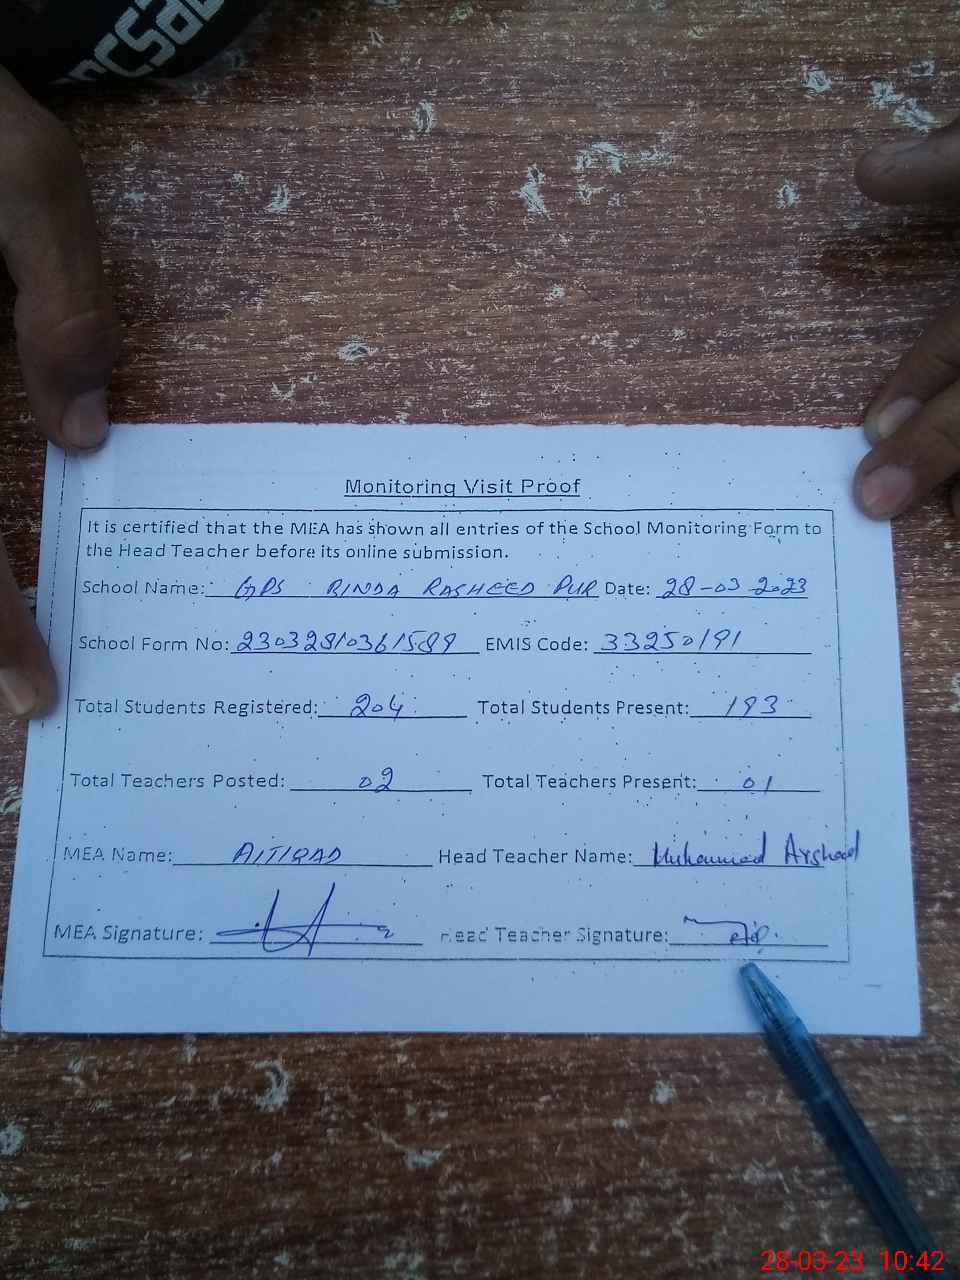 Monitoring Visit Proof
It is certified that the MEA has shown all entries of the School Monitoring Form to
the Head Teacher before its online submission.
School Name: GPS RINDA RASHEED PUR Date: 28-03-2023
School Form No: 23032810361589 EMIS Code: 33250191
Total Students Registered: 204 Total Students Present: 193
Total Teachers Posted: 02 Total Teachers Present: 01
MEA Name: AITIQAD Head Teacher Name: Muhammad Arshad
MEA Signature: Head Teacher Signature:
28-03-23 10:42